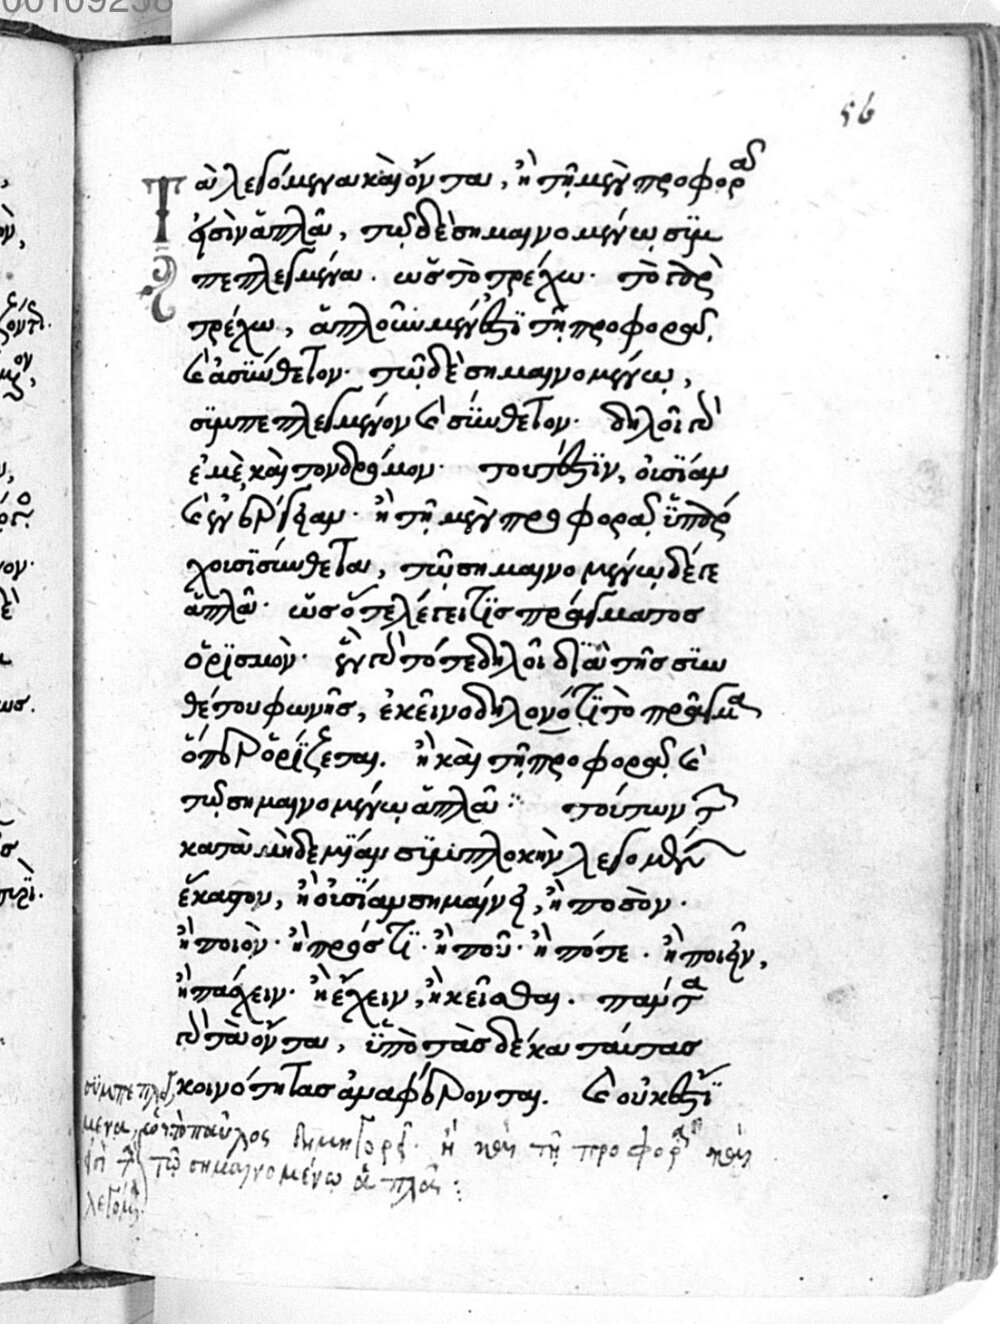 00109238
56
Τὰ λεγόμενα καὶ ὄντα, ἢ τῆ μὲν προφορᾶ
εἰσὶν ἁπλᾶ, τῶ δὲ σημαινομένω συμ
πεπλεγμένα. ὡς τὸ τρέχω. τὸ γὰρ
τρέχω, ἁπλοῦν μέν ἐστι τῆ προφορᾶ,
καὶ ἀσύνθετον. τῶ δὲ σημαινομένω,
συμπεπλεγμένον καὶ σύνθετον. δηλοῖ γὰρ
ἐμὲ καὶ τὸν δρόμον. τουτέστιν, οὐσίαν
καὶ ἐνέργειαν. ἢ τῆ μὲν προφορᾶ ὑπάρ
χουσι σύνθετα, τῶ σημαινομένω δέ γε
ἁπλᾶ. ὡς ὁπότε λέγει τις πράγματος
ὁρισμὸν. ἓν γὰρ τότε δηλοῖ διὰ τῆς συν
θέτου φωνῆς, ἐκεῖνο δηλονότι τὸ πρᾶγμα
ὅπερ ὁρίζεται. ἢ καὶ τῆ προφορᾶ καὶ
τῶ σημαινομένω ἁπλᾶ. τούτων τῶν
κατὰ μηδεμίαν συμπλοκὴν λεγομένων
ἕκαστον, ἢ οὐσίαν σημαίνει, ἢ ποσὸν.
ἢ ποιὸν. ἢ πρός τι. ἢ ποῦ. ἢ πότε. ἢ ποιεῖν,
ἢ πάσχειν. ἢ ἔχειν, ἢ κεῖσθαι. πάντα
γὰρ τὰ ὄντα, ὑπὸ τὰς δέκα ταύτας
κοινότητας ἀναφέρονται. καὶ οὐκ ἔστι
συμπεπλεγ
μένα, ὡς τὸ παῦλος δημηγορεῖ. ἢ καὶ τῆ προφορᾶ καὶ
τῶ σημαινομένω ἁπλᾶ.
λεγόμενα